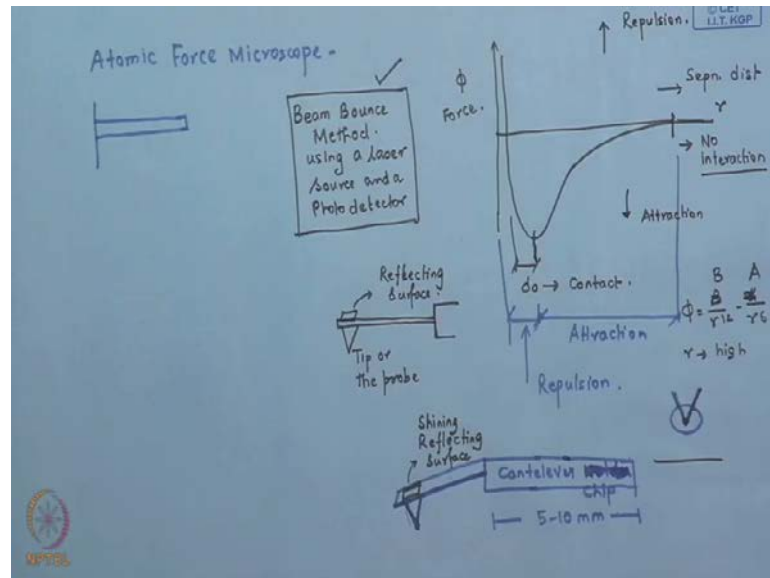 © CET
I.I.T. KGP
Atomic Force Microscope -
Beam Bounce
Method.
using a laser
source and a
Photodetector
Repulsion.
ϕ
Force.
→ Sepn. dist
r
→ No
Interaction
Attraction
do → Contact.
Attraction
Repulsion.
B A
ϕ = B/r12 - A/r6
r → high
Reflecting
Surface.
Tip or
the probe
Shining
Reflecting
Surface
Cantelever
Chip
5-10 mm
NPTEL